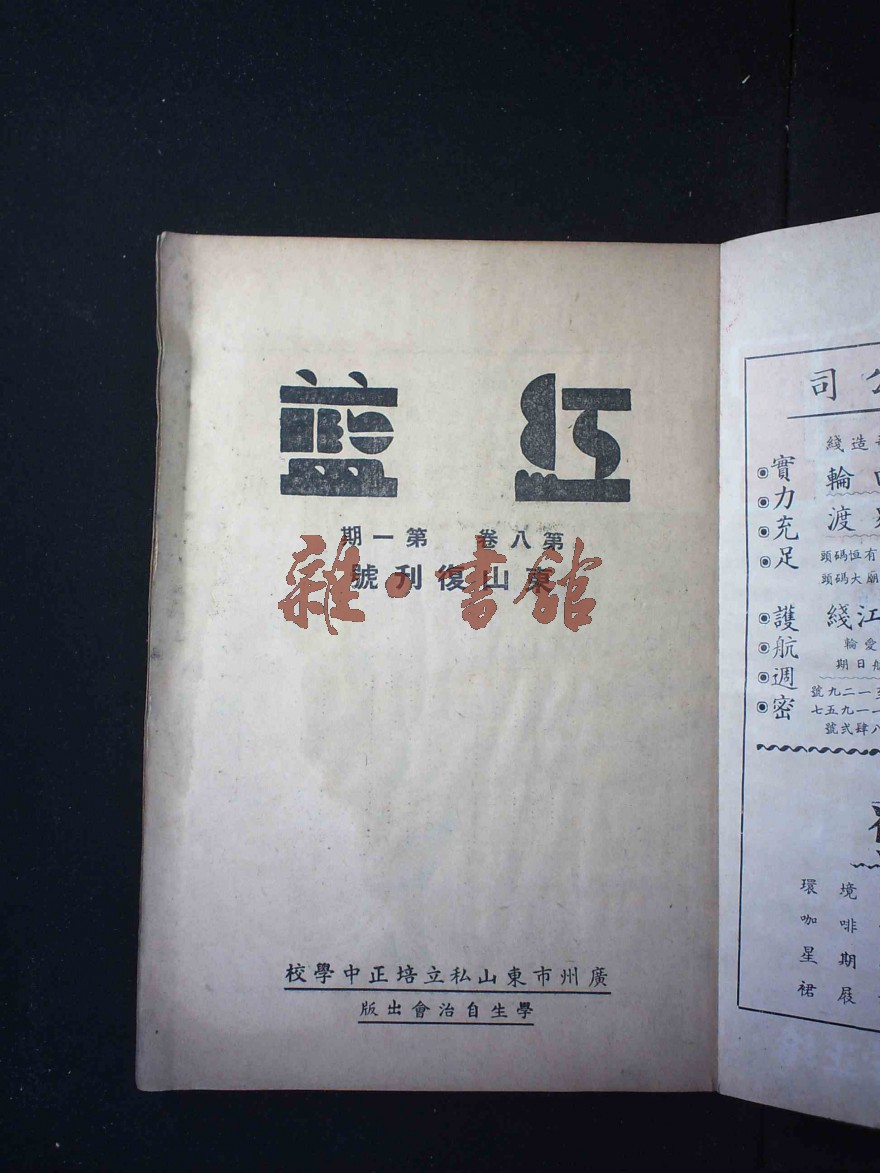 紅藍
第八卷 第一期
東山復刊號
雜·書館
廣州市東山私立培正中學校
學生自治會出版
公司
造綫
輪
渡
有恒碼頭
廟大碼頭
江綫
愛輪
日期
一二九號
一一九五七
八肆弍號
實力充足
護航週密
環境
咖啡
星期
裙屐